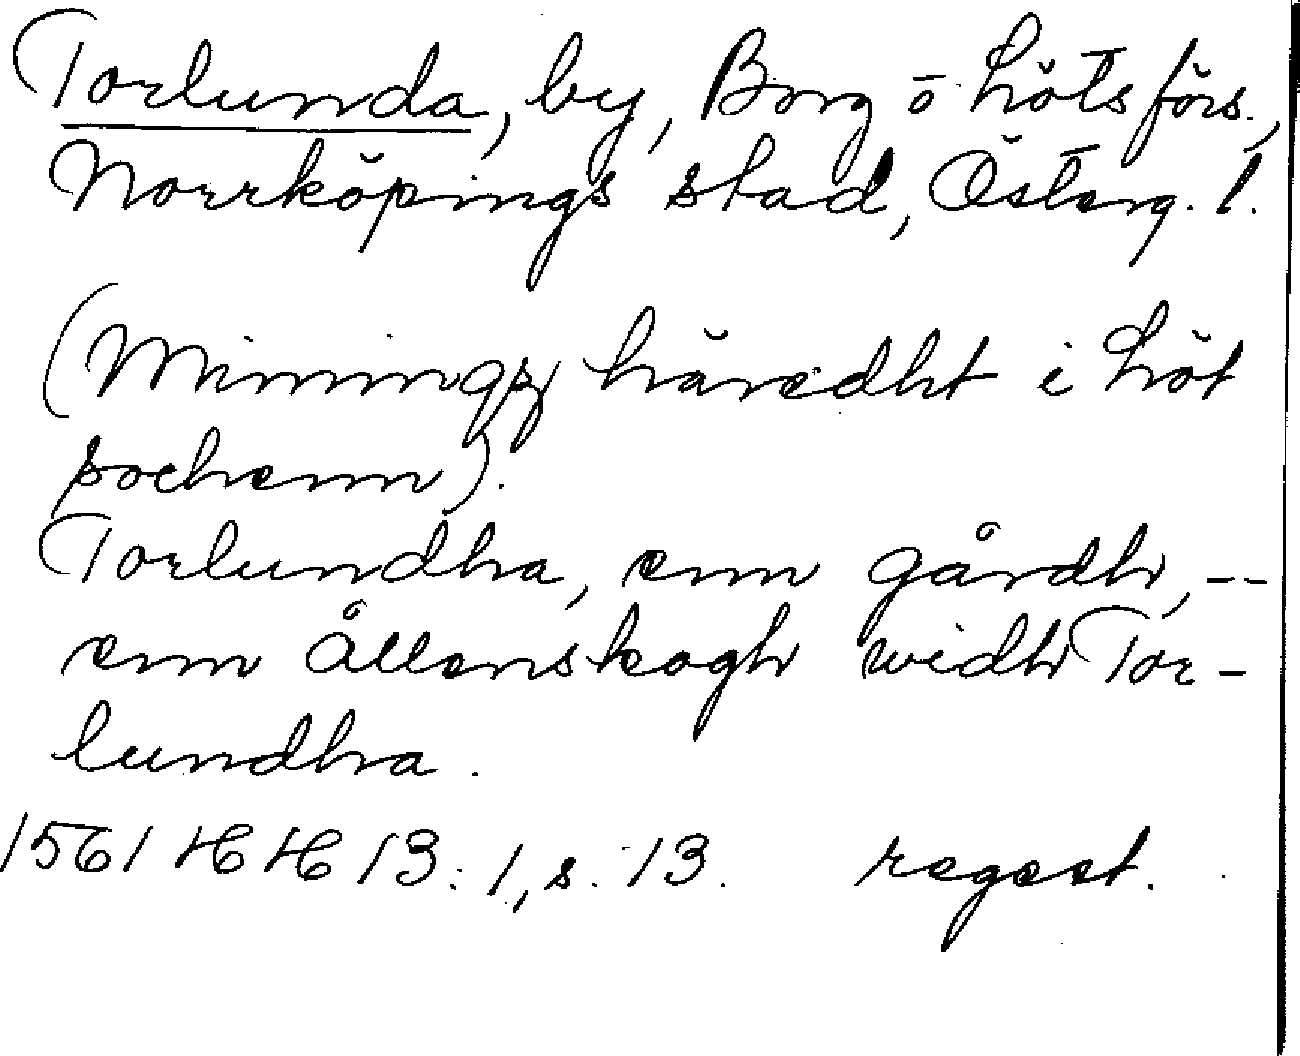 Torlunda, by, Borg o Löts förs.,
Norrköpings stad, Österg. l.
(Miningz häredht i Löt
sochenn).
Torlundha, enn gårdh, --
enn ållenskogh widh Tor-
lundha.
1561 HH 13: 1, s. 13. regest.